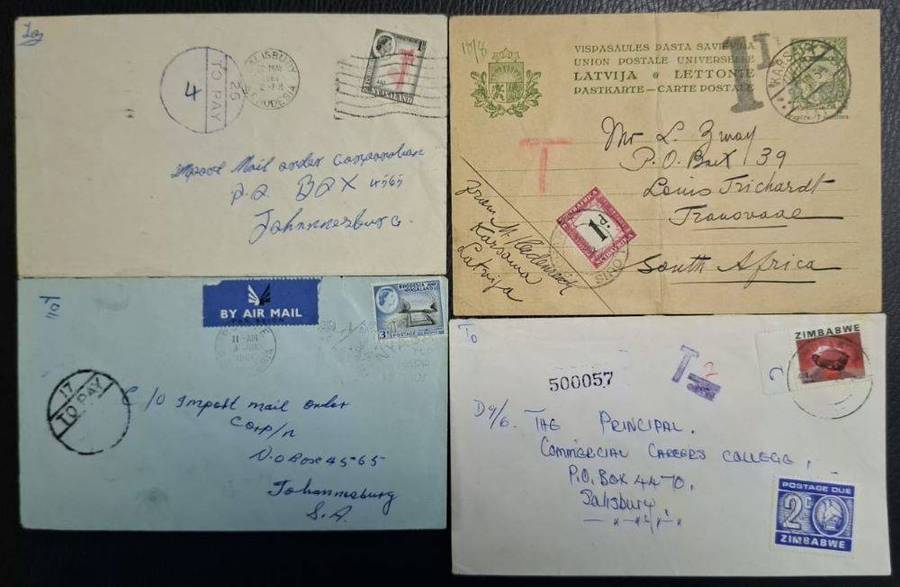 To
SALISBURY
RHODESIA
25
TO PAY
4
NYASALAND
Import Mail order Corporation
P.O. BOX 4565
Johannesburg.
10/8
VISPASAULES PASTA SAVIENIBA
UNION POSTALE UNIVERSELLE
LATVIJA LETTONIE
PASTKARTE — CARTE POSTALE
1D
KARSAVA
T
Mr L. Zway
P.O. Box 39
Louis Trichardt
Transvaal
South Africa
From M
Karsawa
Latvija
SOUTH AFRICA
1D.
To
BY AIR MAIL
RHODESIA AND
NYASALAND
3D
11 - AM
17
TO PAY
C/O Import mail order
Corp/n
P.O Box 4565
Johannesburg
S.A.
To
T 2
500057
ZIMBABWE
D9/6. THE PRINCIPAL.
COMMERCIAL CAREERS COLLEGE,
P.O. BOX 4470,
Salisbury.
POSTAGE DUE
2c
ZIMBABWE